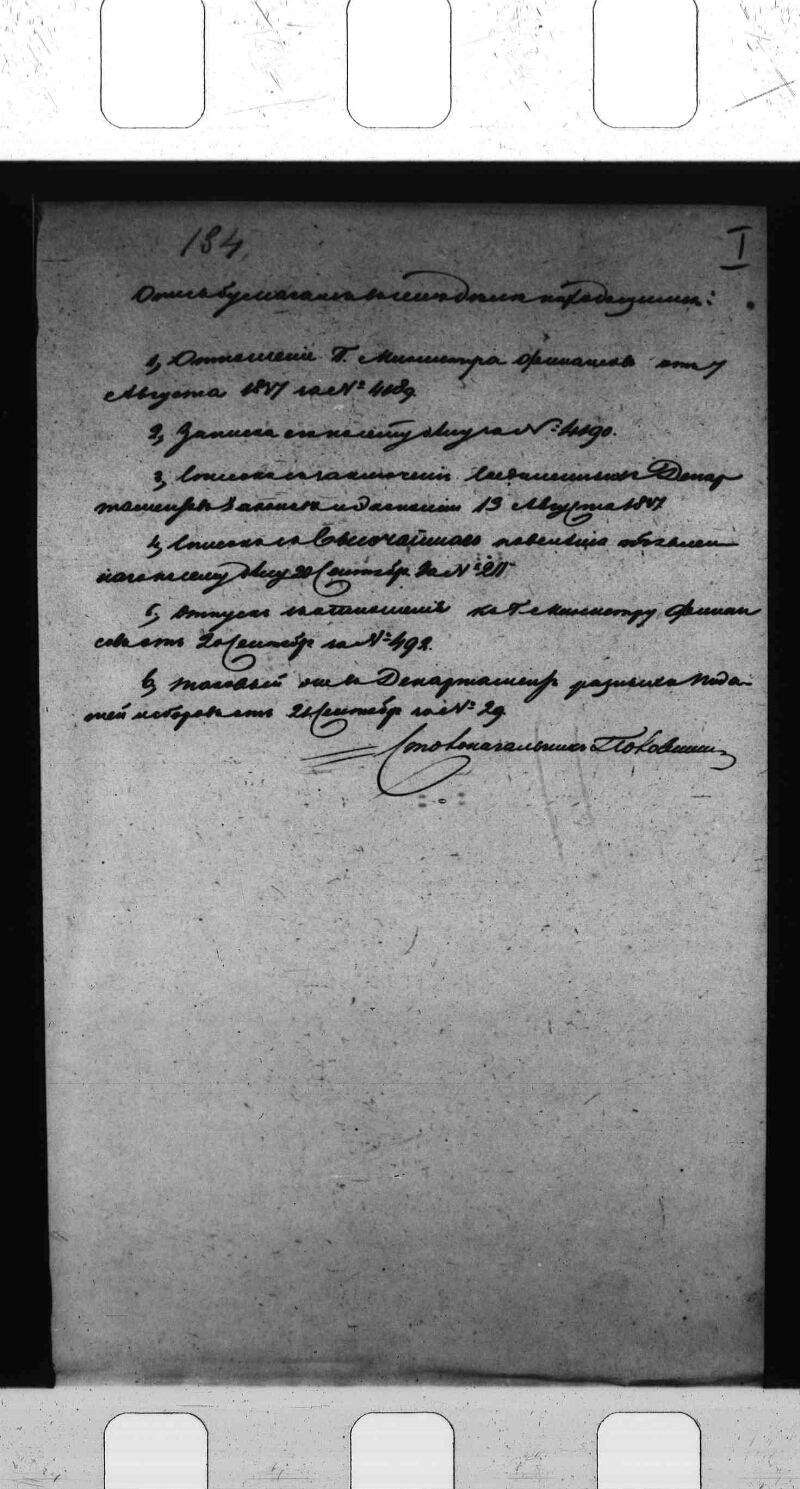 184
I
Опись бумагамъ въ семъ деле находящимся:
1, Отношеніе Г. Министра Финансовъ отъ 7
Августа 1817 за № 4189.
2, Записка къ нему за № 4190.
3, Списокъ съ заключенія Соединенныхъ Депар
таментовъ Законовъ и 13 Августа 1817
4, Списокъ съ Высочайшаго повеленія объявлен
наго к сему делу 20 Сентябр. за №
5, Отпускъ съ отношенія къ Г. Министру Финан
совъ отъ 20 Сентябр за № 492.
6, Таковый же въ Департаментъ разныхъ пода
тей и сборовъ отъ 21 Сентябр за № 29
Столоначальникъ